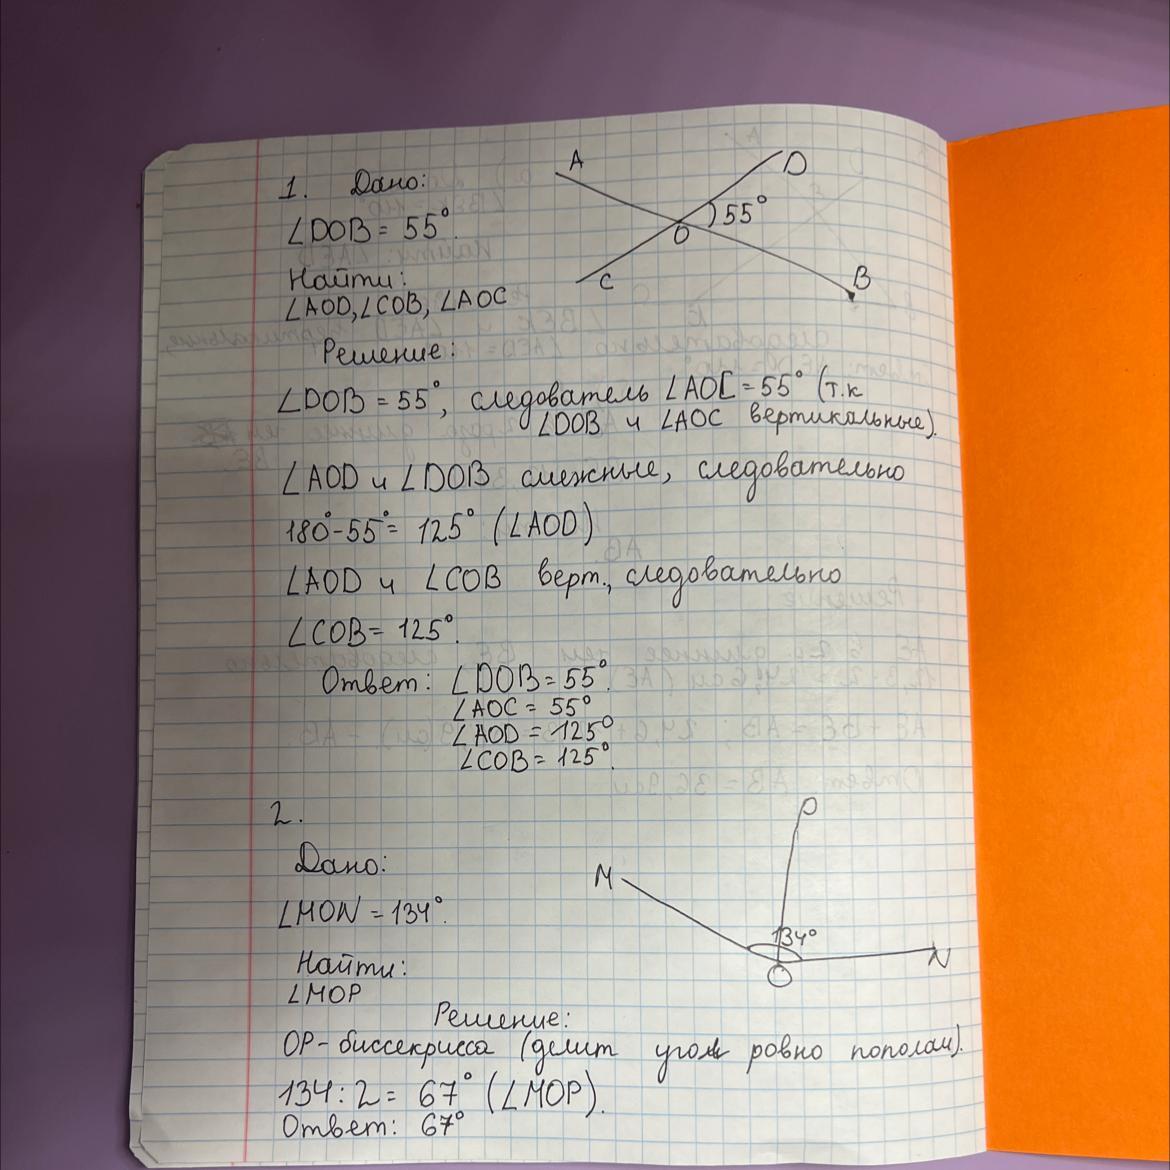 1. Дано:
∠DOB = 55°.
Найти:
∠AOD, ∠COB, ∠AOC
A
D
55°
O
C
B
Решение:
∠DOB = 55°, следователь ∠AOC = 55° (т.к
∠DOB и ∠AOC вертикальные).
∠AOD и ∠DOB смежные, следовательно
180°-55°= 125° (∠AOD)
∠AOD и ∠COB верт., следовательно
∠COB = 125°.
Ответ: ∠DOB = 55°.
∠AOC = 55°
∠AOD = 125°
∠COB = 125°.
2.
Дано:
∠MON = 134°.
Найти:
∠MOP
P
M
134°
O
N
Решение:
OP-биссекрисса (делит угол ровно пополам).
134:2= 67° (∠MOP).
Ответ: 67°